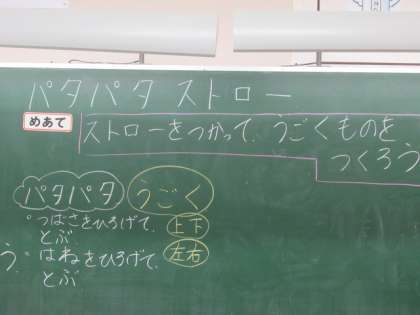 パタパタ ストロー
めあて
ストローをつかって、うごくものを
つくろう
パタパタ うごく
°つばさをひろげて、 上下
とぶ
う。 °はねをひろげて、 左右
とぶ